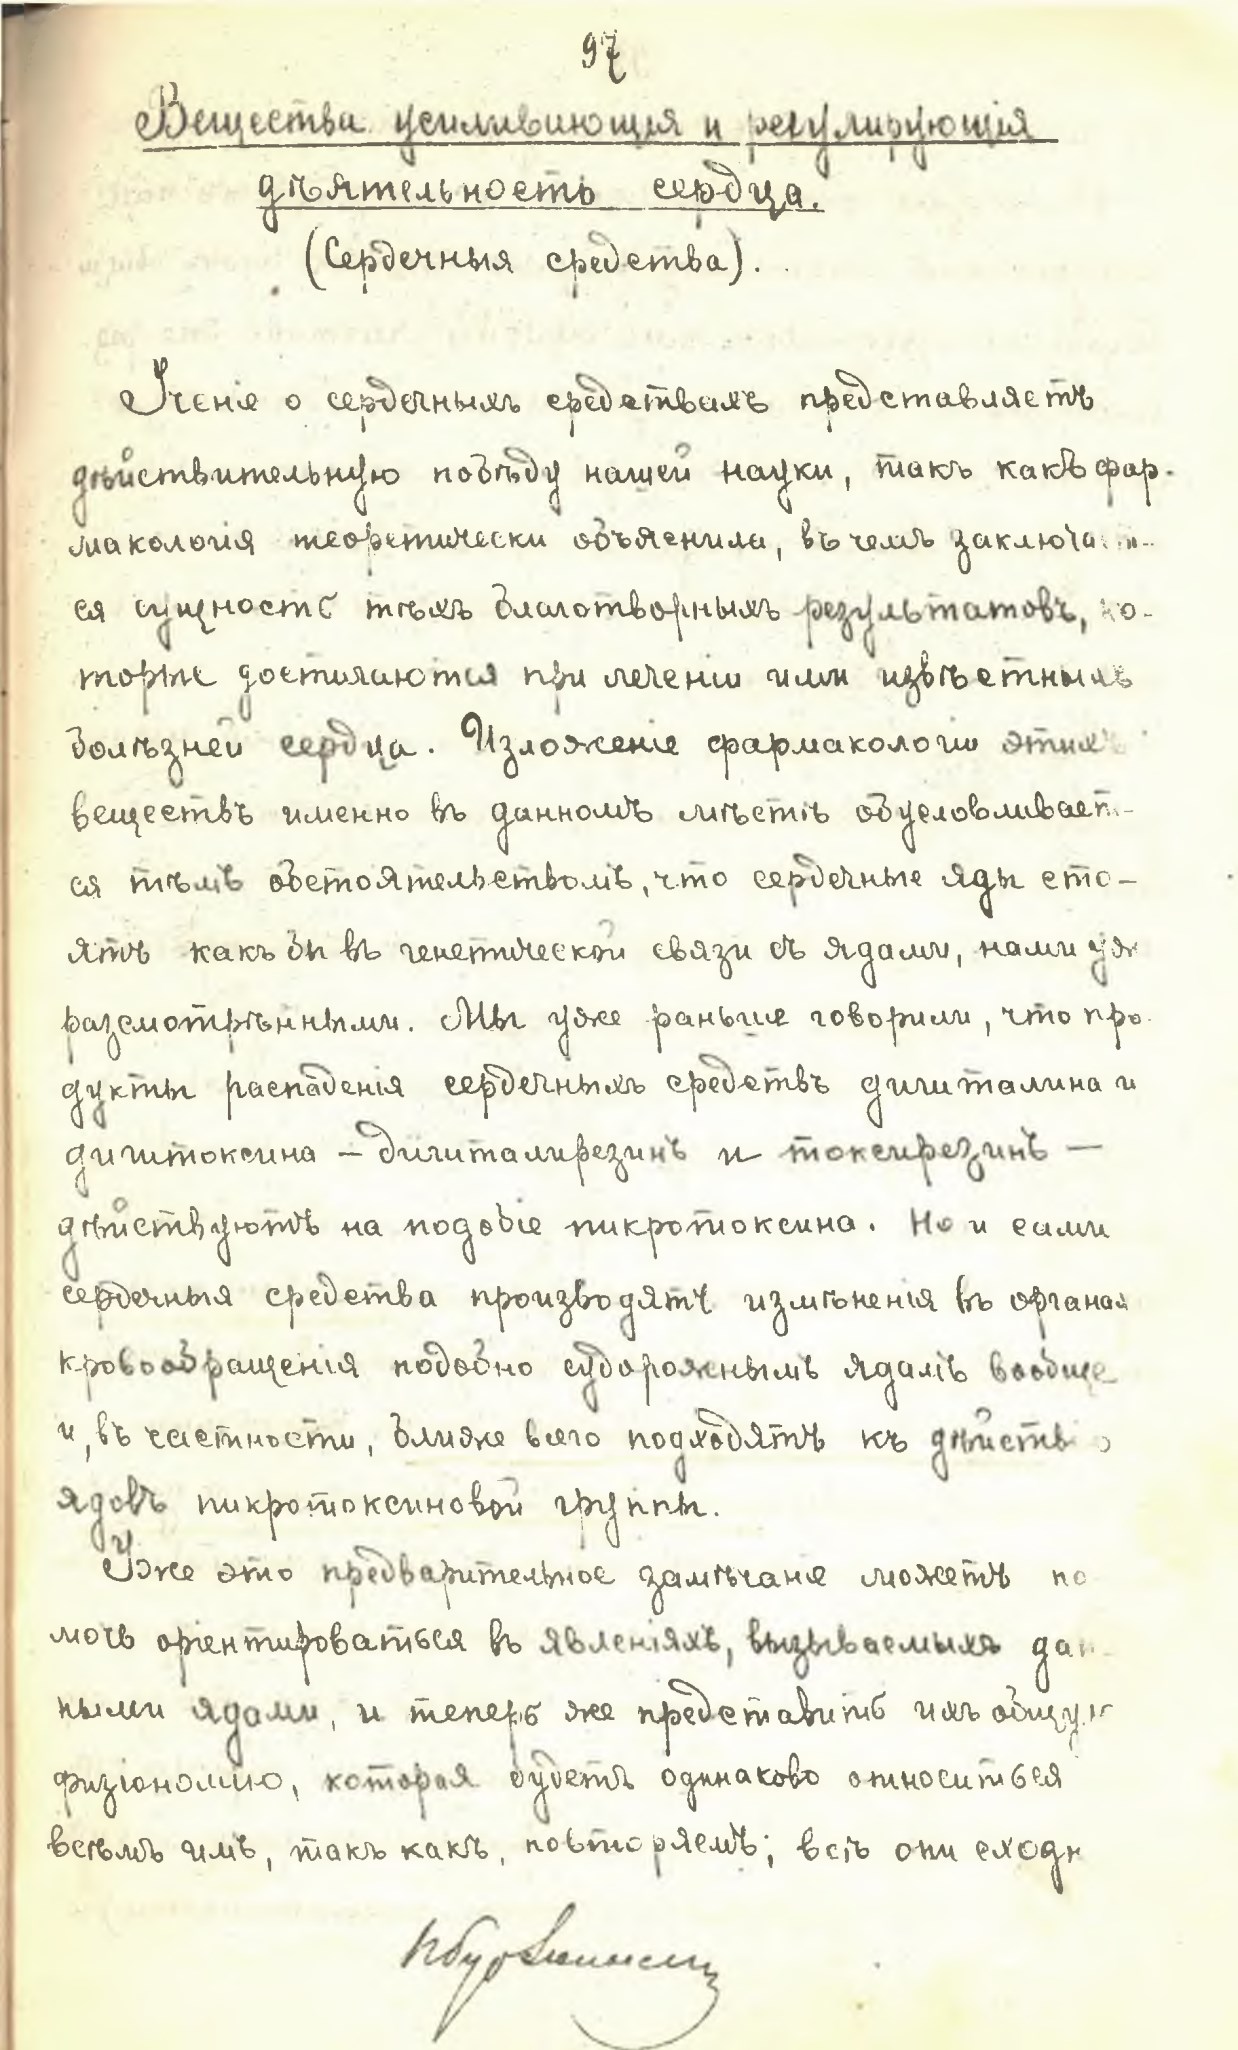 97
Вещества усиливающія и регулирующія
дѣятельность сердца.
(Сердечныя средства).
Ученіе о сердечныхъ средствахъ представляетъ
дѣйствительную побѣду нашей науки, такъ какъ фар-
макологія теоретически объяснила, въ чемъ заключает-
ся сущность тѣхъ благотворныхъ результатовъ, ко-
торые достигаются при леченіи ими извѣстныхъ
болѣзней сердца. Изложеніе фармакологіи этихъ
веществъ именно въ данномъ мѣстѣ обусловливает-
ся тѣмъ обстоятельствомъ, что сердечные яды сто-
ятъ какъ бы въ генетической связи съ ядами, нами уже
разсмотрѣнными. Мы уже раньше говорили, что про-
дукты распаденія сердечныхъ средствъ дигиталина и
дигитоксина – дигиталирезинъ и токсирезинъ –
дѣйствуютъ на подобіе пикротоксина. Но и сами
сердечныя средства производятъ измѣненія въ органах
кровообращенія подобно судорожнымъ ядамъ вообще
и, въ частности, ближе всего подходятъ къ дѣйствію
ядовъ пикротоксиновой группы.
Уже это предварительное замѣчаніе можетъ по
мочь оріентироваться въ явленіяхъ, вызываемыхъ дан-
ными ядами, и теперь же представить ихъ общую
физіономію, которая будетъ одинаково относиться
всѣмъ имъ, такъ какъ, повторяемъ, всѣ они сходн